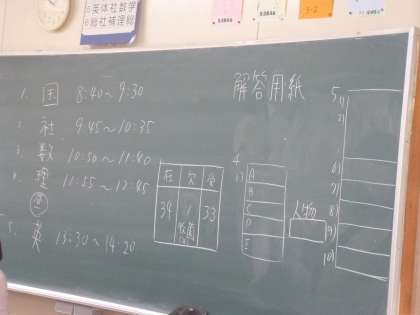 5 英体社数学
6 総社補理総
解答用紙
1. 国 8:40～9:30
2. 社 9:45～10:35
3. 数 10:50～11:40
4. 理 11:55～12:45
5. 英 13:30～14:20
在 欠 受
34 1 33
4
1)
A
B
C
D
E
人物
5
1)
2)
6)
7)
8)
9)
10)